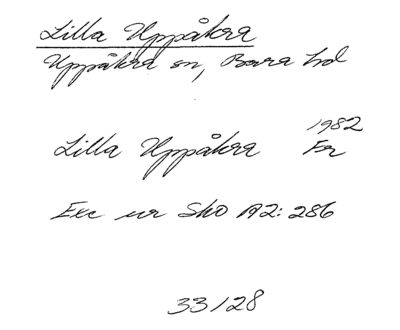 Lilla Uppåkra
Uppåkra sn, Bara hd
1982
Lilla Uppåkra Fr
Exc ur SkO A2: 286
33/28